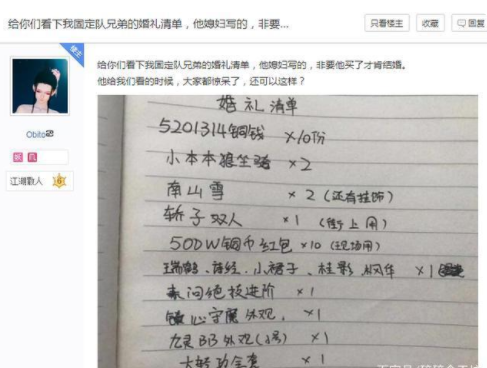 给你们看下我固定队兄弟的婚礼清单，他媳妇写的，非要...
只看楼主 收藏 回复
楼主
给你们看下我固定队兄弟的婚礼清单，他媳妇写的，非要他买了才肯结婚。
他给我们看的时候，大家都惊呆了，还可以这样？
Obito
江湖散人 6
婚礼清单
5201314铜钱 ×10份
小本本雅坐骑 ×2
南山雪 ×2 (还有挂饰)
轿子双人 ×1 (街上用)
500W铜币红包 ×10 (现场用)
瑞鹤、 小裙子、桂影、枫华 ×1
素问绝技进阶 ×1
心守魇外观, ×1
九灵BB外观(小号) ×1
大转功全套 ×1